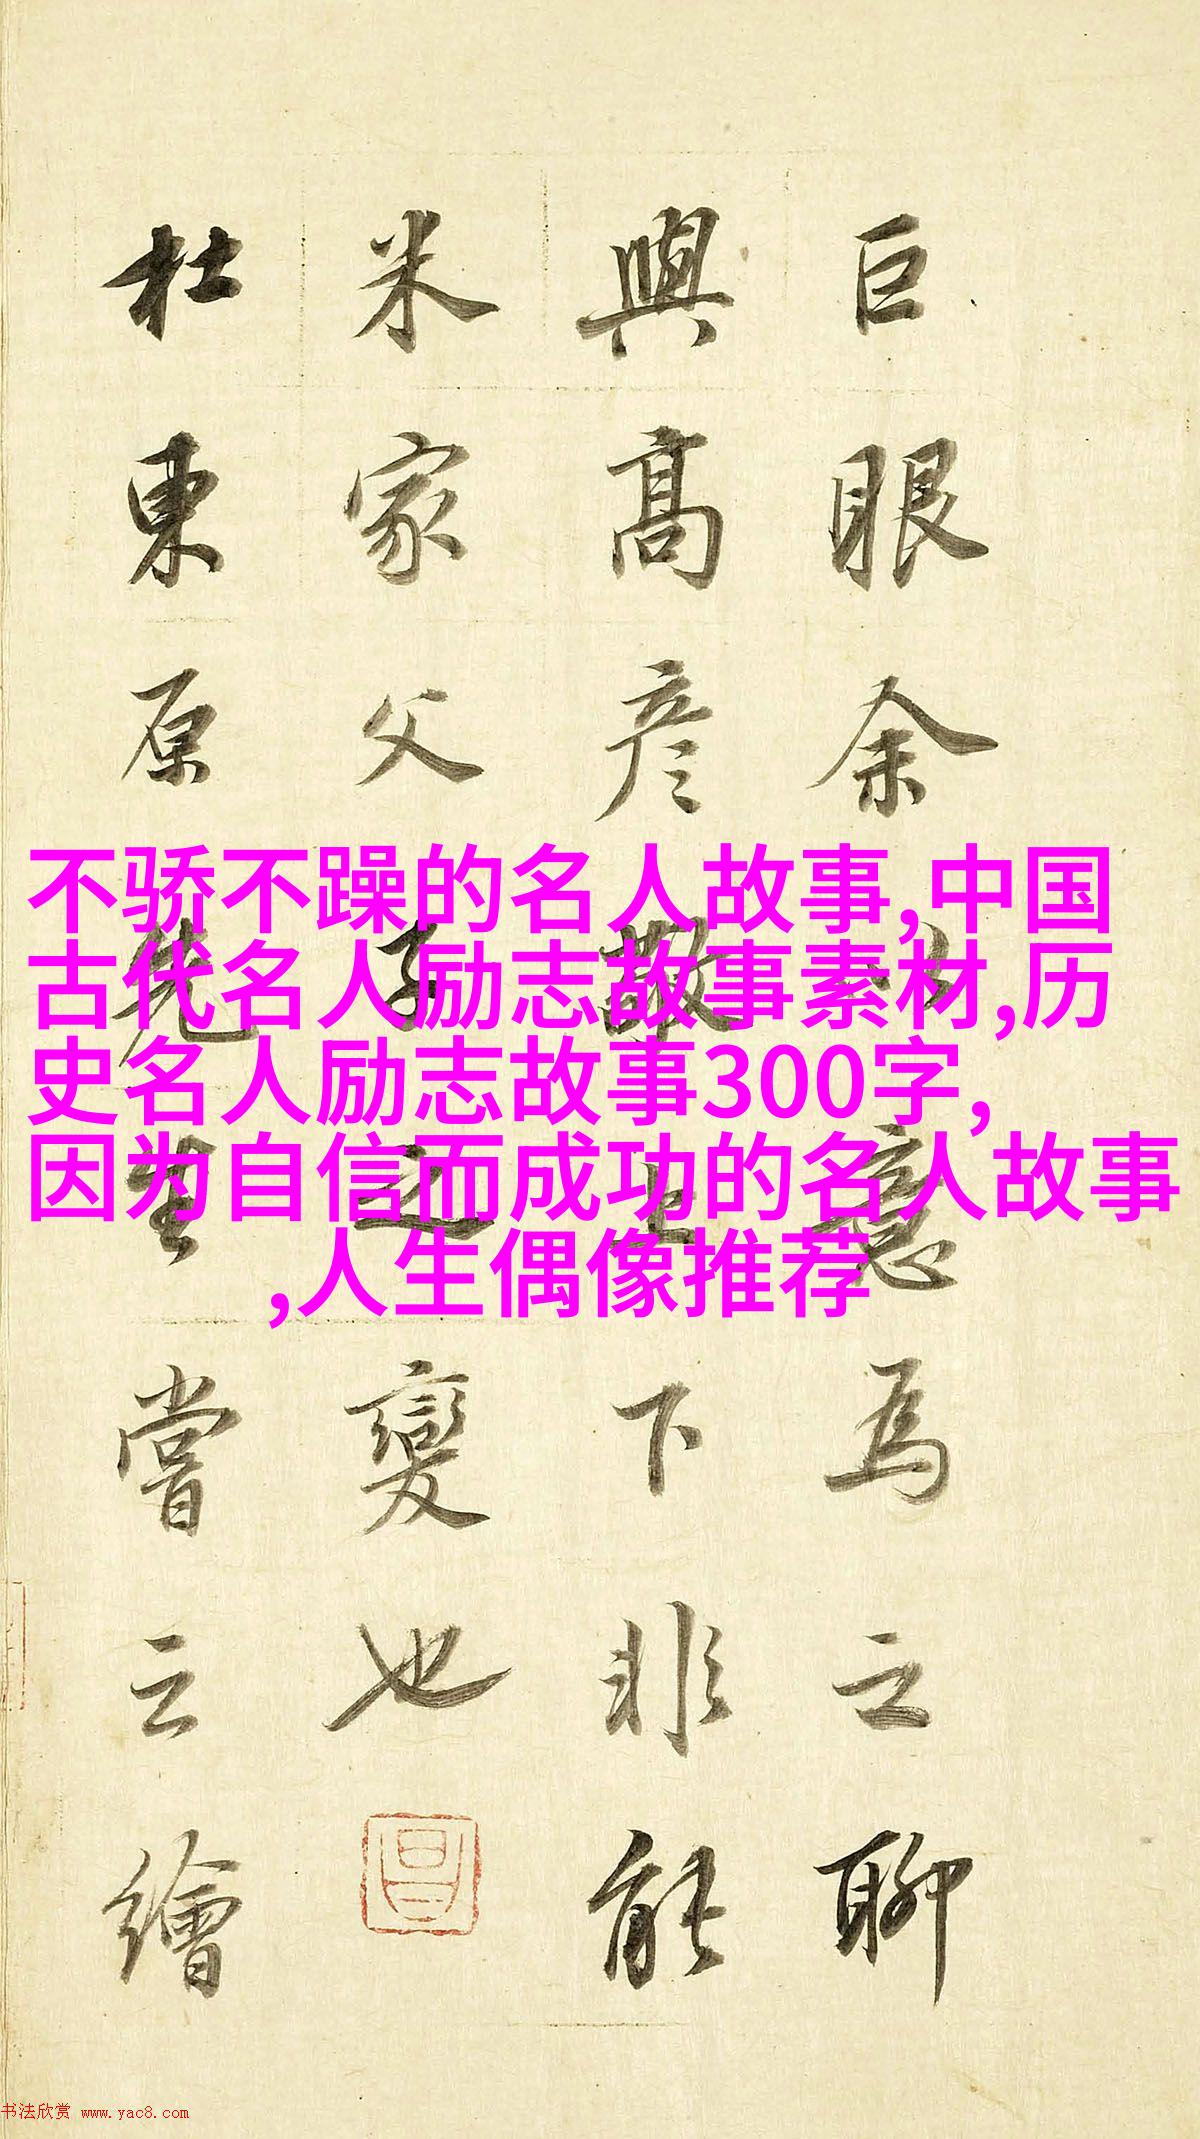 巨眼余
意爲之聊
與高彦敬
上下非能
米家父
子之變也
杜東原
先生嘗云繪
不骄不躁的名人故事,中国
古代名人励志故事素材,历
史名人励志故事300字,
因为自信而成功的名人故事
,人生偶像推荐
书法欣赏 www.yac8.com